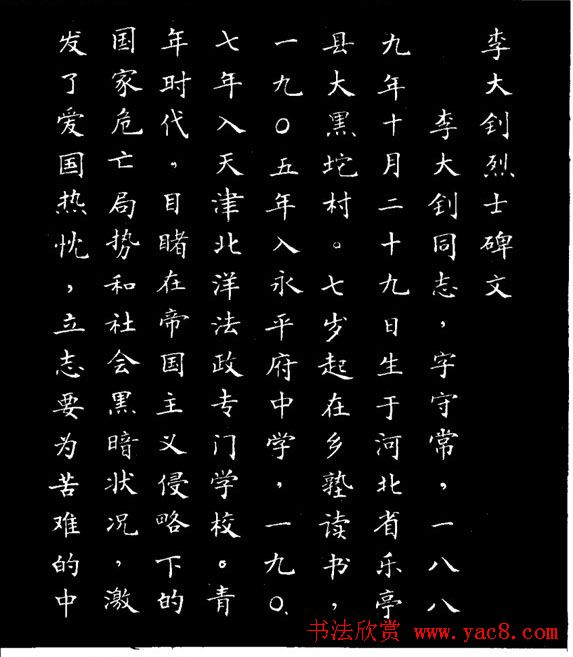 李大钊烈士碑文
李大钊同志，字守常，一八八
九年十月二十九日生于河北省乐亭
县大黑坨村。七岁起在乡塾读书，
一九〇五年入永平府中学，一九〇
七年入天津北洋法政专门学校。青
年时代，目睹在帝国主义侵略下的
国家危亡局势和社会黑暗状况，激
发了爱国热忱，立志要为苦难的中
书法欣赏 www.yac8.com